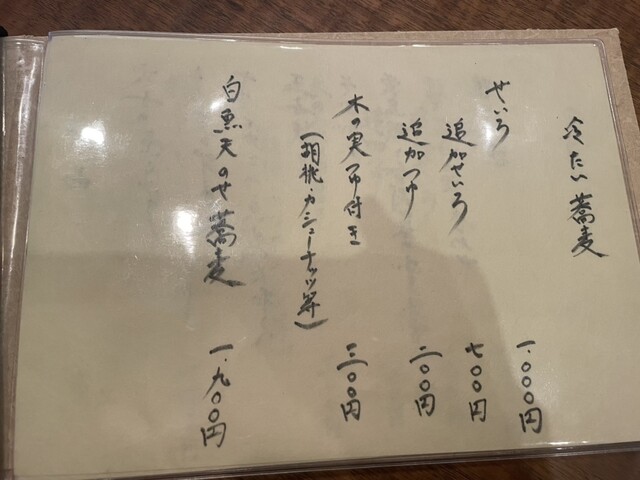 冷たい蕎麦
せいろ 一.〇〇〇円
追加せいろ 七〇〇円
追加つゆ 二〇〇円
木の実つゆ付き 三〇〇円
(胡桃・カシューナッツ等)
白黒天のせ蕎麦 一.九〇〇円